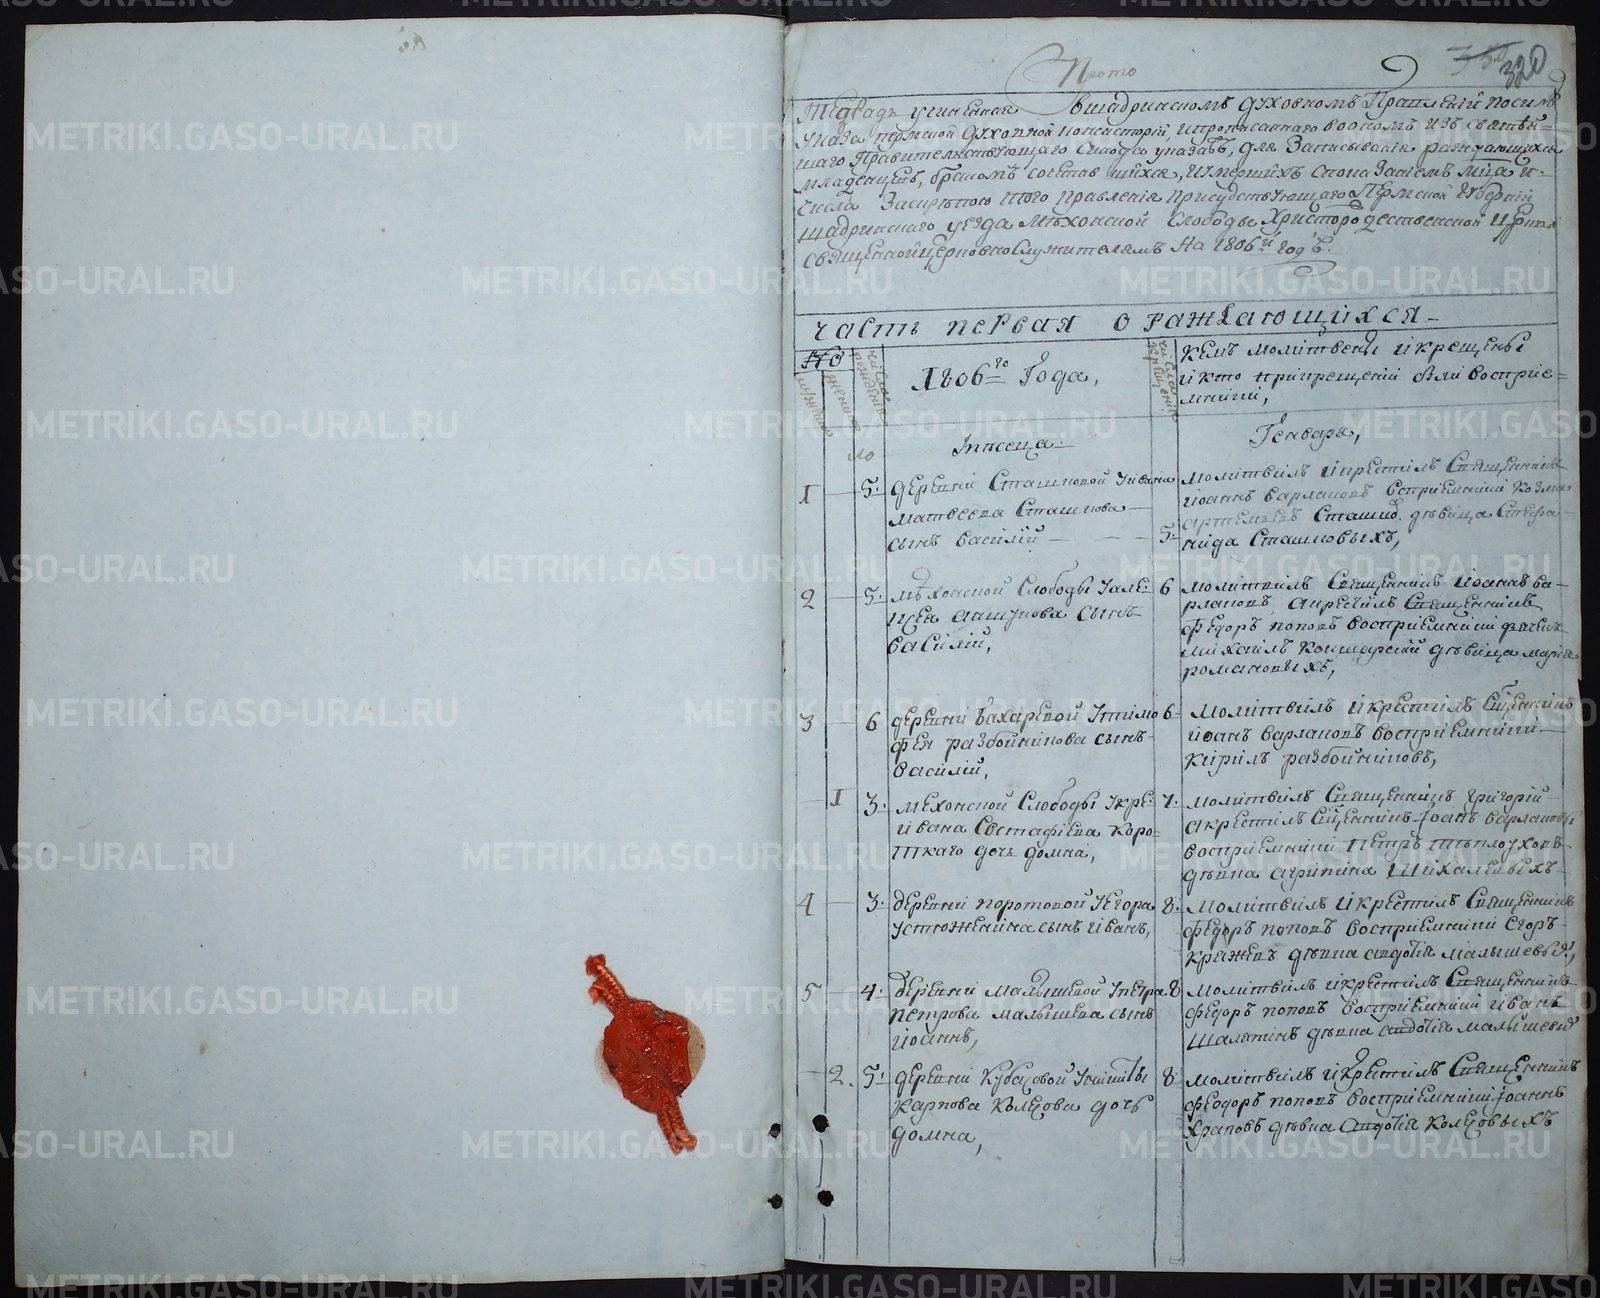 Прото
320
Тетрадь учиненная в шадринскомъ духовномъ Правлении по силѣ
указа пермской духовной консистории, и прописаннаго во ономъ изъ святѣй=
шаго Правительствующаго Синода указовъ, для записывания раждающихся
младенцевъ, бракомъ сочетавшихся, и умершихъ с показаниемъ мца и
числа за скрепою того правления присудствующаго Пермской губернии
шадринскаго уезда Мѣхонской Слободы Христорождественской церкви
священноицерковнослужителямъ На 1806й годъ.
часть первая о раждающихся
No
мужеска
женска
числа рождения
1806го Года,
числа крещения
Кемъ молитвены и крещены
и кто при крещении были восприе=
мники,
Мѣсеца
Генваря,
1 5 деревни Сташковой у ивана
матвеева Сташкова
сынъ василий 5
молитвилъ и крестилъ Священникъ
иоаннъ варлаковъ восприемники Козма
артемьевъ Сташков. дѣвица Степа
нида Сташковыхъ,
2 5 мѣхонской Слободы у але
ксея сынъ
василий,
6 молитвилъ Священникъ иоаннъ ва
рлаковъ, а крестилъ Священникъ
федоръ поповъ восприемники
михаилъ дѣвица марья
романовыхъ,
3 6 деревни Бахаревой у тимо
фея разбойникова сынъ
василий,
6 молитвилъ и крестилъ Священникъ
иоанъ варлаковъ восприемники
кирилъ разбойниковъ,
1 3 мехонской Слободы у кре:
ивана Евстафиева коро=
ткаго дочь домна,
7 молитвилъ Священникъ григорий
а крестилъ Священникъ иоанъ варлаковы
восприемники петръ тѣплоуховъ
дѣвка агрипина Шихалевыхъ
4 3 деревни поротовой у егора
устюженина сынъ иванъ,
8 молитвилъ и крестилъ Священникъ
федоръ поповъ восприемники егоръ
кряжевъ дѣвка авдотия малышевых,
5 4 деревни малышевой у петра
петрова малышева сынъ
иоаннъ,
8 молитвилъ и крестилъ Священникъ
федоръ поповъ восприемники иванъ
шаляпинъ дѣвка авдотия малышевых
2 5 деревни Кубасовой у никиты
карпова Колцова дочь
домна,
8 молитвилъ и крестилъ Священникъ
феодоръ поповъ восприемники иоаннъ
храповъ дѣвка авдотия колцовыхъ
METRIKI.GASO-URAL.RU